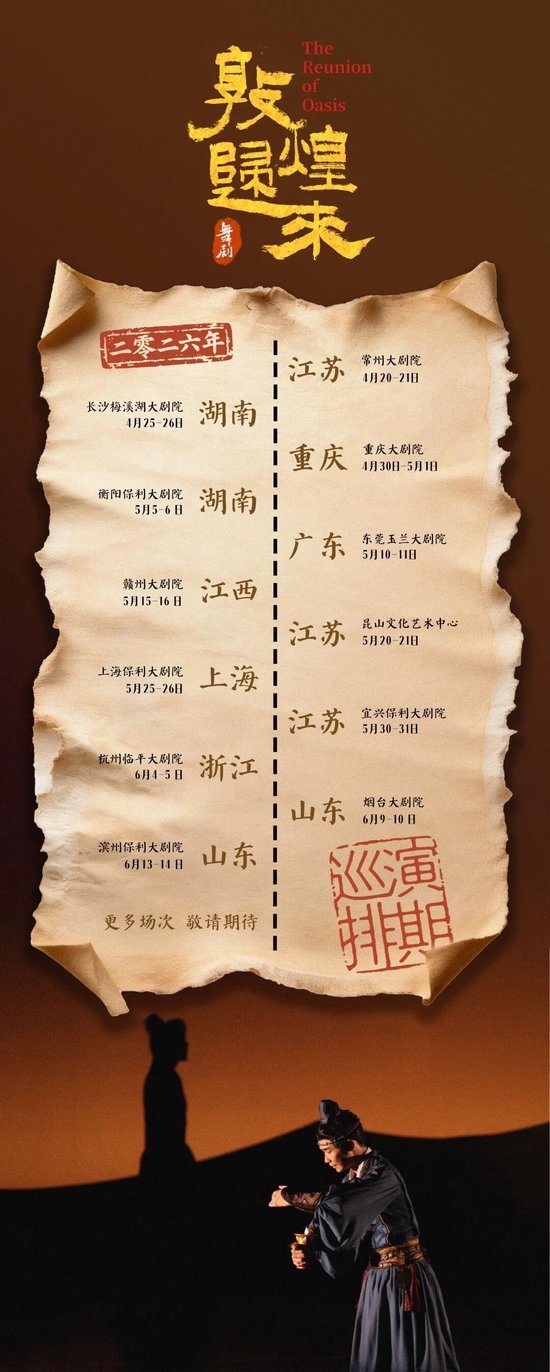 敦煌
歸來
The
Reunion
of
Oasis
舞剧
二零二六年
江苏
常州大剧院
4月20-21日
长沙梅溪湖大剧院
4月25-26日
湖南
重庆
重庆大剧院
4月30日-5月1日
衡阳保利大剧院
5月5-6日
湖南
广东
东莞玉兰大剧院
5月10-11日
赣州大剧院
5月15-16日
江西
江苏
昆山文化艺术中心
5月20-21日
上海保利大剧院
5月25-26日
上海
江苏
宜兴保利大剧院
5月30-31日
杭州临平大剧院
6月4-5日
浙江
山东
烟台大剧院
6月9-10日
滨州保利大剧院
6月13-14日
山东
更多场次 敬请期待
巡演
排期